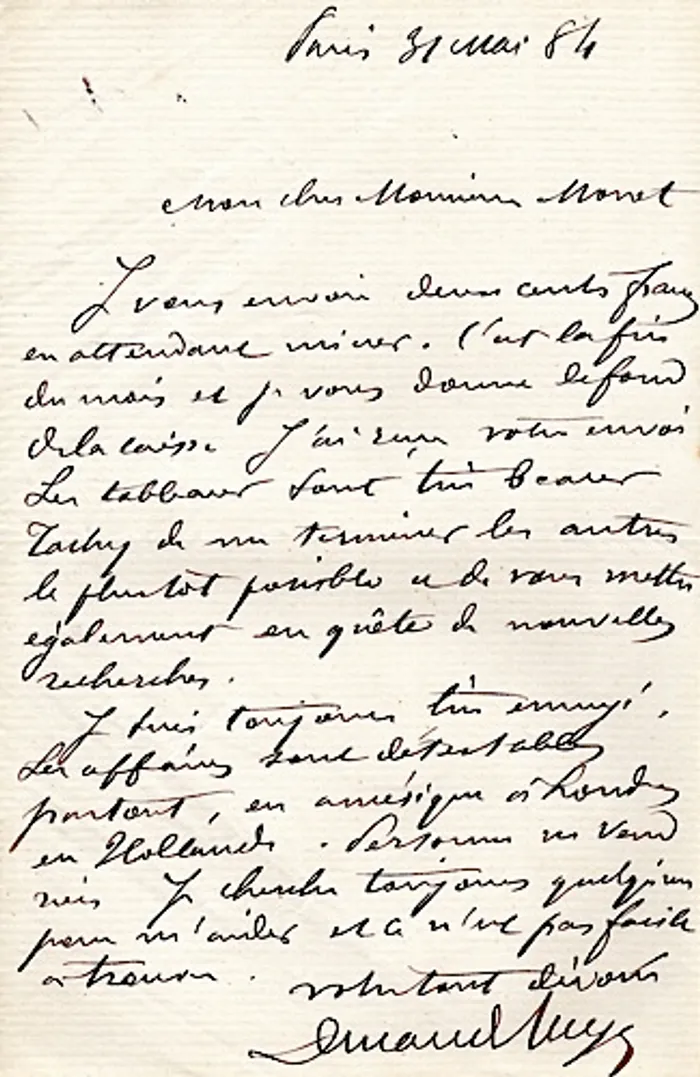 Paris 31 Mai 84
Mon cher Monsieur Monet
Je vous envoie deux cents francs
en attendant mieux. C'est la fin
du mois et je vous donne le fond
de la caisse J'ai reçu votre envoi
Les tableaux sont très beaux
Tachez de me terminer les autres
le plutôt possible et de vous mettre
également en quête de nouvelles
recherches.
Je suis toujours très ennuyé,
Les affaires sont détestables
partout, en amérique à Londres
en Hollande. Personne ne vend
rien Je cherche toujours quelqu'un
pour m'aider et ce n'est pas facile
à trouver. votre tout dévoué
Durand Ruel